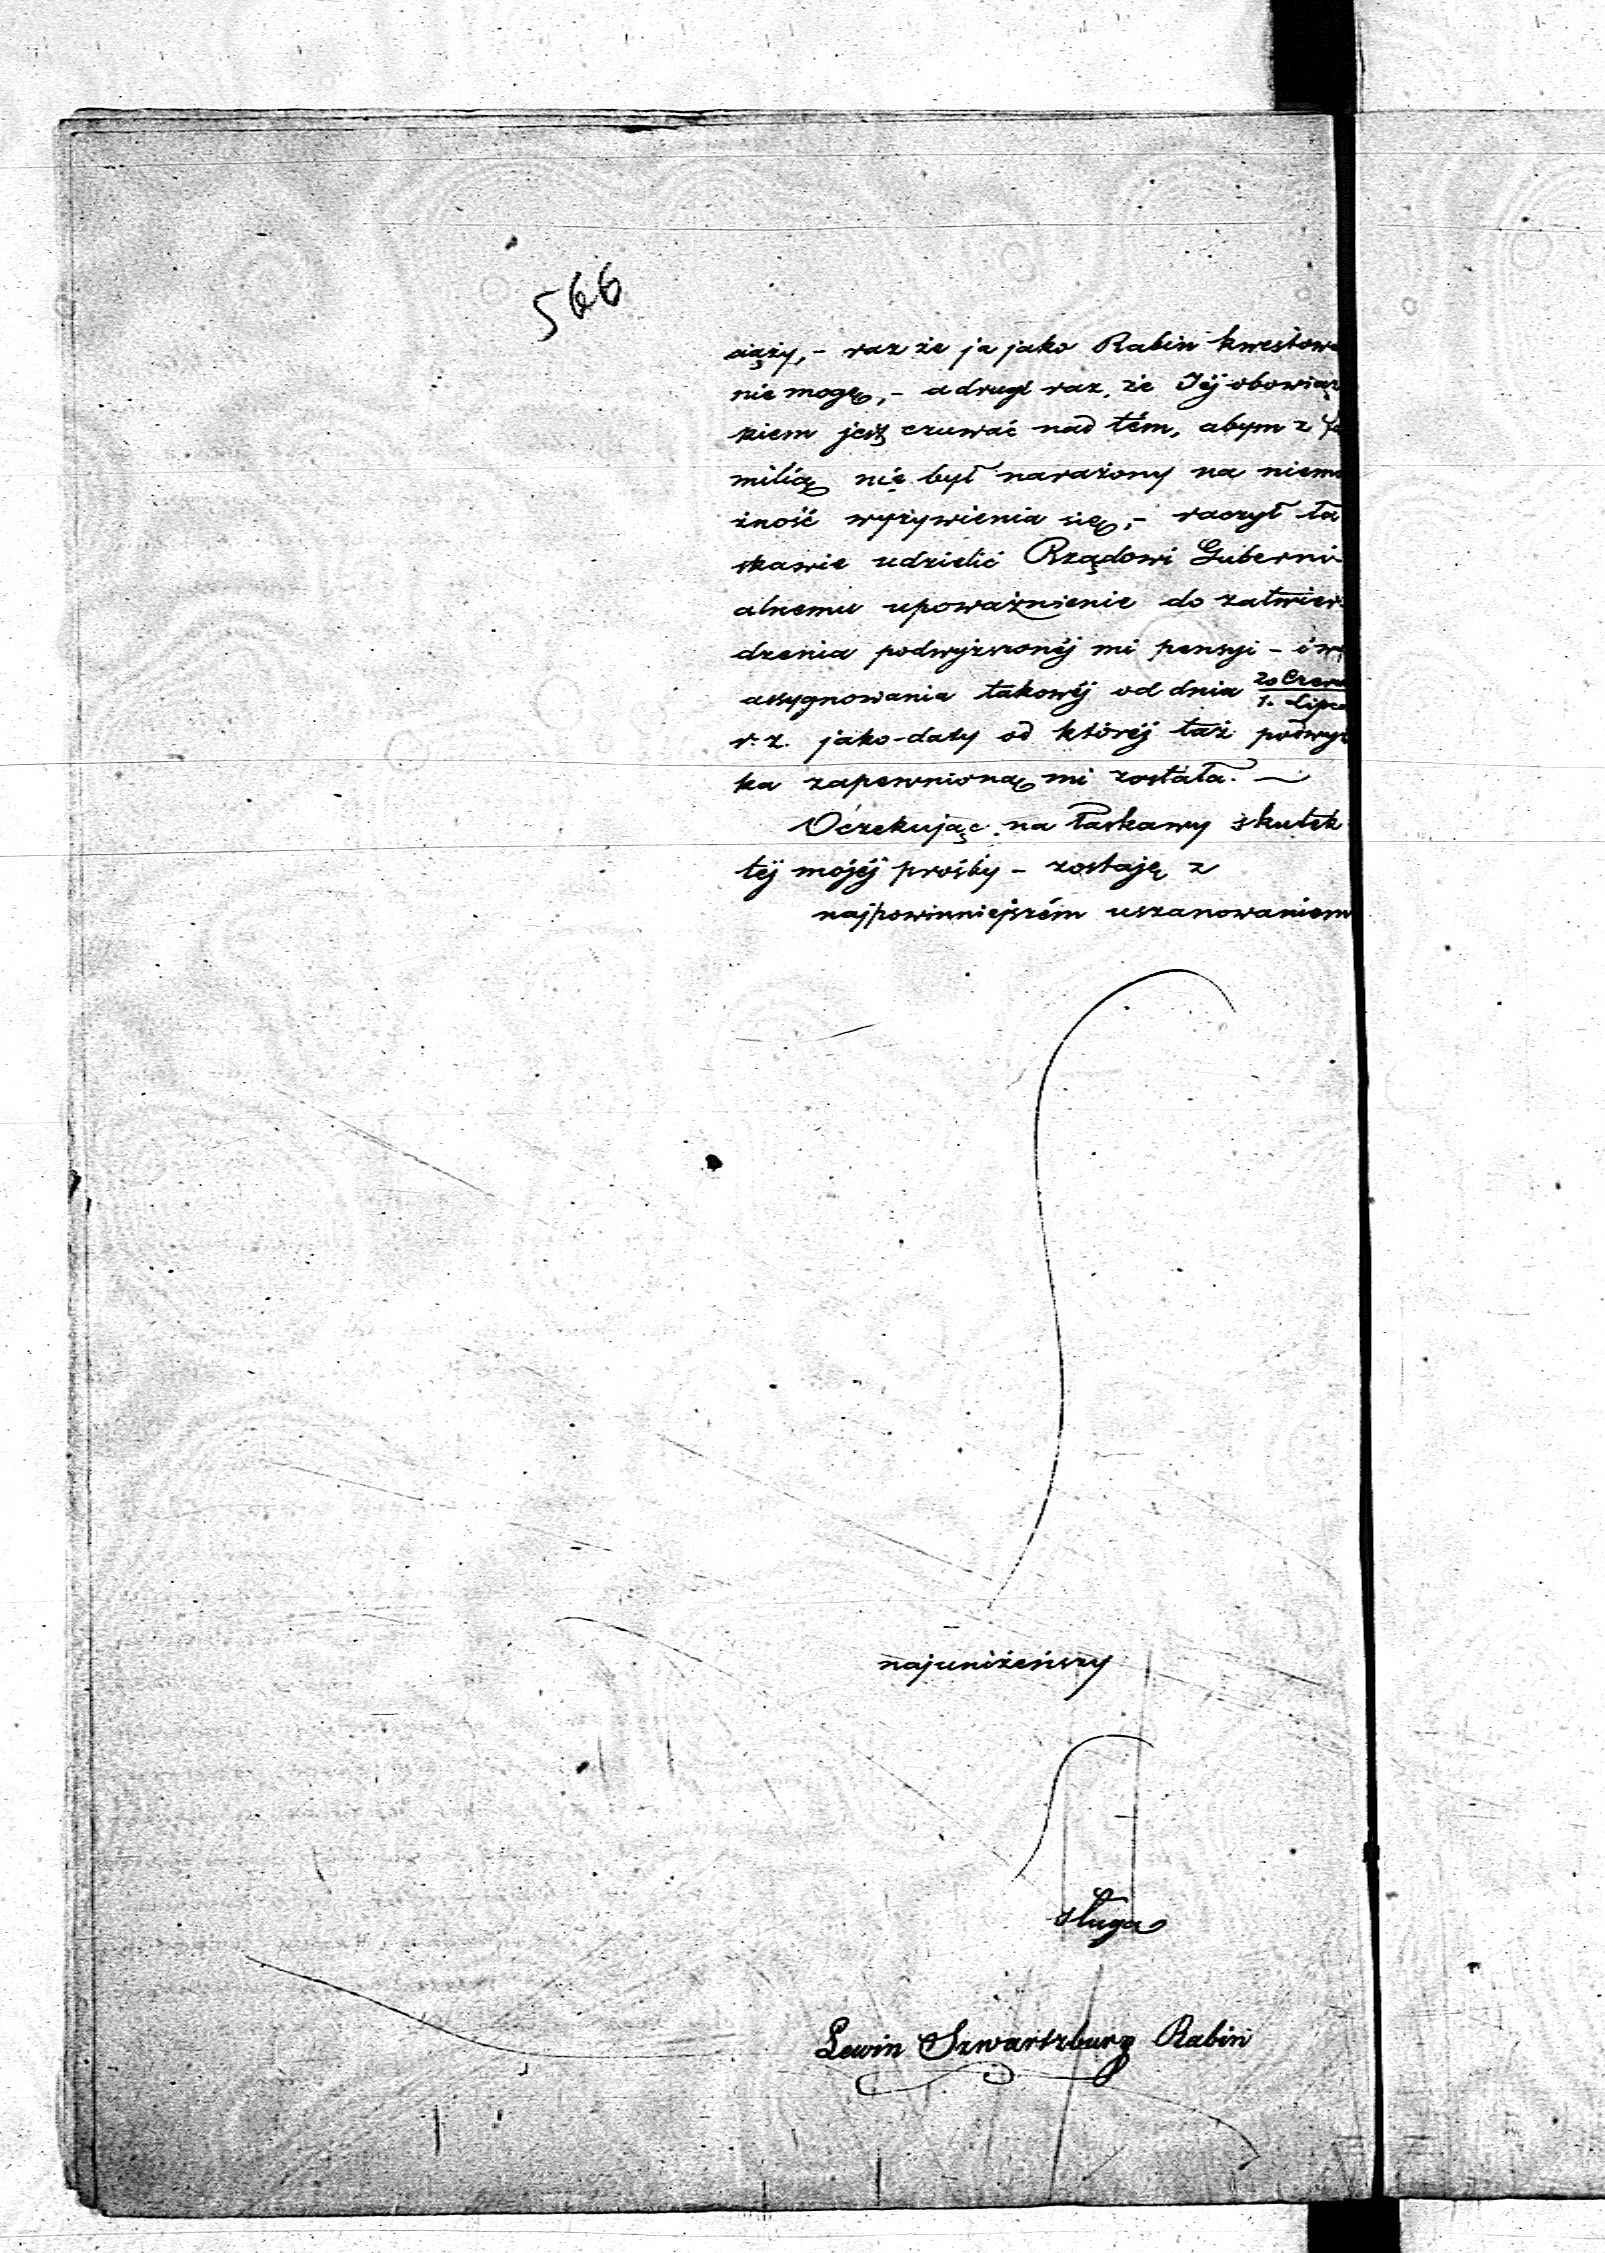 566
ciąży, – raz że ja jako Rabin kwestowa
nie mogę, – a drugi raz, że Jéj obowiąz
kiem jest czuwać nad tém, abym z fa
milią nie był narażony na niemo
żność wyżywienia się, – raczył ła
skawie udzielić Rządowi Guberni-
alnemu upoważnienie do zatwier-
dzenia podwyższonéj mi pensyi – i wy
assygnowania takowéj od dnia 20 Czerw
1. Lipca
r. z. jako daty od któréj taż podwyż
ka zapewnioną mi została. –
Oczekując na łaskawy skutek
téj mojéj prośby – zostaję z
najpowinniejszém uszanowaniem
najuniżeńszy
sługa
Lewin Szwartzburg Rabin